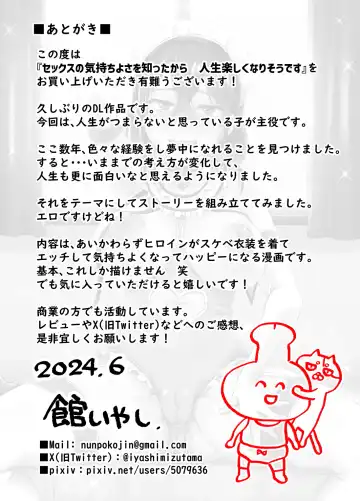 ■あとがき■
この度は
『セックスの気持ちよさを知ったから　人生楽しくなりそうです』を
お買い上げいただき有難うございます！
久しぶりのDL作品です。
今回は、人生がつまらないと思っている子が主役です。
ここ数年、色々な経験をし夢中になれることを見つけました。
すると・・・いままでの考え方が変化して、
人生も更に面白いなと思えるようになりました。
それをテーマにしてストーリーを組み立ててみました。
エロですけどね！
内容は、あいかわらずヒロインがスケベ衣装を着て
エッチして気持ちよくなってハッピーになる漫画です。
基本、これしか描けません　笑
でも気に入っていただけると嬉しいです！
商業の方でも活動しています。
レビューやX(旧Twitter)などへのご感想、
是非宜しくお願いします！
2024.6
館いやし.
■Mail: nunpokojin@gmail.com
■X(旧Twitter)：@iyashimizutama
■pixiv：pixiv.net/users/5079636